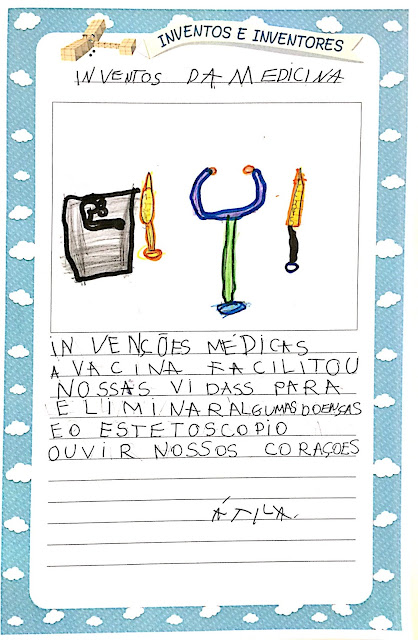 INVENTOS E INVENTORES
INVENTOS DA MEDICINA
INVENÇÕES MÉDICAS
A VACINA FACILITOU
NOSSAS VIDASS PARA
ELIMINAR ALGUMAS DOENSAS
E O ESTETOSCOPIO
OUVIR NOSSOS CORAÇOES
ÁTILA.